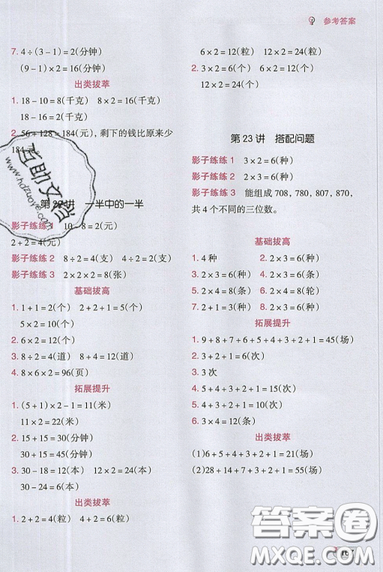 参考答案
7. 4÷(3-1)=2(分钟)
(9-1)×2=16(分钟)
出类拔萃
1. 18-10=8(千克) 8×2=16(千克)
18-16=2(千克)
2. 56+128=184(元),剩下的钱比原来少
184元
一半中的一半
影子练练 1 10-8=2(元)
2+2=4(元)
影子练练 2 8÷2=4(支) 4÷2=2(支)
影子练练 3 2×2×2=8(张)
基础拔高
1. 1+1=2(个) 2+2+1=5(个)
5×2=10(个)
2. 6×2=12(个)
3. 8÷2=4(道) 8÷4=2(道)
4. 8×6×2=96(页)
拓展提升
1. (5+1)×2-1=11(米)
11×2=22(米)
2. 15+15=30(分钟)
30+15=45(分钟)
3. 30-18=12(本) 12×2=24(本)
30-24=6(本)
出类拔萃
1. 2+2=4(粒) 4+2=6(粒)
6×2=12(粒) 12×2=24(粒)
2. 3×2=6(个) 6×2=12(个)
12×2=24(个)
第 23 讲 搭配问题
影子练练 1 3×2=6(种)
影子练练 2 2×3=6(种)
影子练练 3 能组成 708,780,807,870,
共 4 个不同的三位数。
基础拔高
1. 4 种 2. 2×3=6(种)
3. 2×3=6(种) 4. 2×4=8(条)
5. 2×4=8(种) 6. 2×5=10(条)
7. 2+1=3(种) 8. 2×3=6(种)
拓展提升
1. 9+8+7+6+5+4+3+2+1=45(场)
2. 1+2=3(次)
3. 5+4+3+2+1=15(次)
4. 3×4=12(条)
出类拔萃
(1)6+5+4+3+2+1=21(场)
(2)28+14+7+3+2+1=55(场)
互助文学
答案圈
MXQE.COM